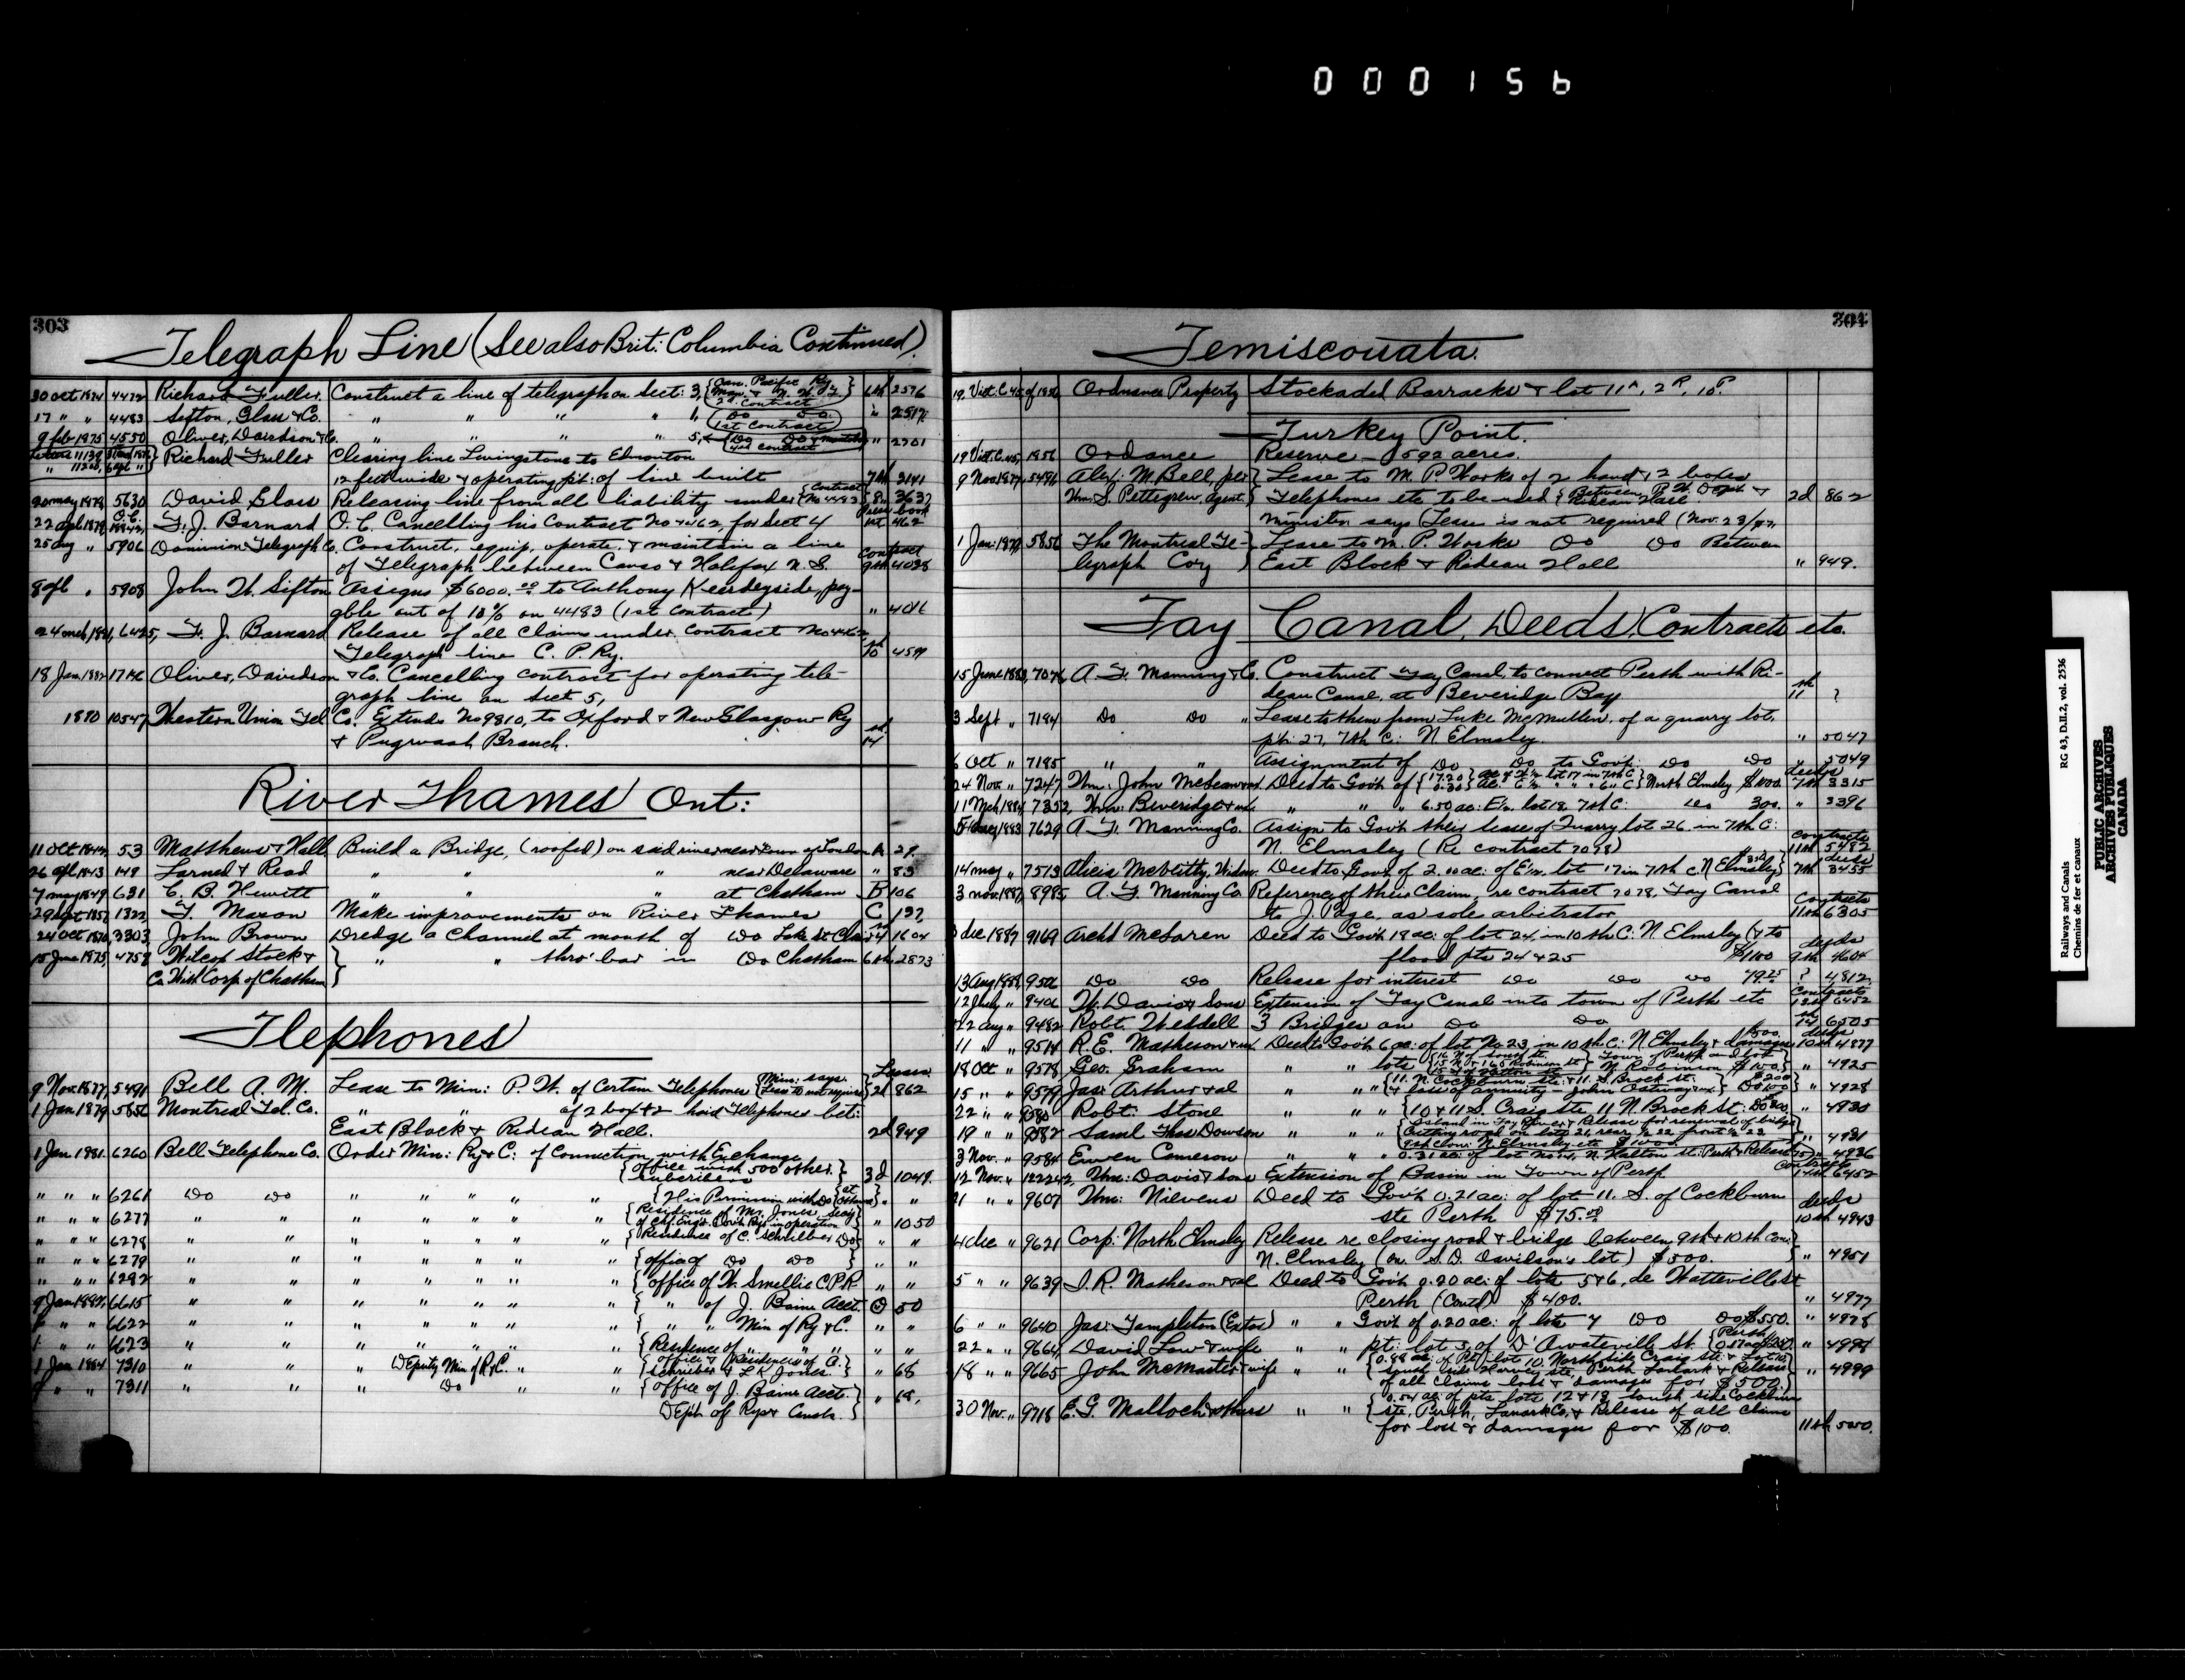 000156
303
Telegraph Line (See also Brit: Columbia Continued)
30 Oct 1874 4472 Richard Fuller. Construct a line of telegraph on Sect: 3, {Can. Pacific Ry. 6th 2576
2d Contract
17 " " 4483 Sifton, Glass & Co. " " " " 1, Do Do " 2517
1st Contract
9 feb 1875 4550 Oliver, Davidson & Co. " " " " 5, Do Do " 2701
4th Contract
Letters 11139 Richard Fuller Clearing line Livingstone to Edmonton
12 feet wide & operating pt: of line built 7th 3141
20 may 1878 5630 David Glass Releasing line from all liability under {Contract No 4483 8" 3637
22 apl 1879 F. J. Barnard O. C. Cancelling his Contract No 4462, for Sect 4 1st 462
25 aug " 5906 Dominion Telegraph Co. Construct, equip, operate, & maintain a line Contract
of Telegraph between Canso & Halifax N. S. 9th 4028
8 " 5908 John W. Sifton Assigns $6000.00 to Anthony pay-
able out of 10% on 4483 (1st Contract) " 4016
24 mch 1881, 6425, F. J. Barnard Release of all Claims under Contract No 4462
Telegraph line C. P. Ry. 10 4599
18 Jan 1882 Oliver, Davidson & Co. Cancelling contract for operating tele-
graph line on Sect 5,
1890 10547 Western Union Tel Co. Extends No 9810, to Oxford & New Glasgow Ry
& Pugwash Branch. 14
River Thames Ont:
11 Oct 53 Matthews & Hall Build a Bridge, (roofed) on said river near Town of London A 29.
26 apl 1843 148 Larned & Read " " " near Delaware " 83
7 may 1849 631 C. B. Hewitt " " " at Chatham B 106
29 Sept 1322, F. Mason Make improvements on River Thames C 197
24 Oct 1870, 3303 John Brown Dredge a Channel at mouth of Do Lake St Clair 4 1604
15 June 1875, 4758 Wilcox Stock & } " " thro' bar in Do Chatham 6th 2873
Co. With Corp of Chatham
Tlephones
Leases.
9 Nov. 1877, 5491 Bell A. M. Lease to Min: P. W. of Certain Telephones {Min: says Lease is not required 2d 862
1 Jan 1879 5856 Montreal Tel. Co. " " of 2 box & 2 hand Telephones bet:
East Block & Rideau Hall. 2d 949
1 Jan 1881. 6260 Bell Telephone Co. Order Min: Ry & C: of Connection with Exchange
{office with 500 other Subscribers} 3d 1049.
" " " 6261 Do Do " " " " {His Permission with Do at Ottawa} " "
" " " 6277 " " " " " " {Residence of Mr. Jones, Secy
of Chf. Engr. Govt. Rys in operation " 1050
" " " 6278 " " " " " " {Residence of C. Schrieber Do " "
" " " 6279 " " " " " " {office of Do Do } " "
" " " 6292 " " " " " " {office of W. Smellie C.P.R. " "
9 Jan 6615 " " " " " " { " of J. Baine Acct. 50
" " 6622 " " " " " " { " " Min of Ry & C. " "
1 " " 6623 " " " " " " {Residence of " " " " "
1 Jan 1884 7310 " " " Deputy Min of R & C. " " {office & Residences of C.
Schrieber & L. K. Jones. } " 68
" " 7311 " " " Do " " {office of J. Baine Acct. } " 68.
Dept. of Rys & Canals.
304
Temiscouata.
19. Vict. C. 45 of 1856 Ordnance Property Stockaded Barracks & lot 11A, 2R, 10P
Turkey Point.
19 Vict. C. 45, 1856 Ordance Reserve - 592 acres.
9 Nov 1877, 5491 Alex: M. Bell, per Lease to M. P. Works of 2 hand & 2 boxes
Wm. S. Pettegrew, Agent. Telephones etc. to be used {Between P. W. Dept & Rideau Hall. 2d 862
Minister says (Lease is not required (Nov. 23/77,
1 Jan: 1879 5856 The Montreal Te- Lease to M. P. Works Do Do Between
legraph Coy East Block & Rideau Hall " 949.
Tay Canal, Deeds, Contracts etc.
15 June 1883, A. F. Manning & Co. Construct Tay Canal, to connect Perth with Ri-
deau Canal, at Beveridge Bay 11th ?
3 Sept " 7184 Do Do " Lease to them from Luke McMullen, of a quarry lot,
pt: 27, 7th C: N. Elmsley. " 5047
6 Oct " 7185 " " Assignment of Do Do to Govt: Do Do " 5049
24 Nov. " 7247 Wm. John McLean Deed to Govt. of {17.20 lot 17 in 7th C North Elmsley $1000. 7th 3315
11 Mch 1884, 7352, Wm. Beveridge " " " 6.50 ac: E½, lot 18, 7th C: Do 300. " 3396
1883 7629 A. F. Manning Co. Assign to Govt their lease of Quarry lot 26 in 7th C:
N. Elmsley (Re contract 7078) Contracts 11th 5482
14 may " 7513 Alicia McVeitty, Widow. Deed to Govt. of 2.10 ac: of E½, lot 17 in 7th C. N Elmsley 7th 3455
3 mar. 1887, 8985 A. F. Manning Co. Reference of their Claim, re contract 7078, Tay Canal
to J. Page, as sole arbitrator Contracts 11th 6305
3 dec 1887 9169 Archd McLaren Deed to Govt. 18 ac: of lot 24, in 10th C: N. Elmsley (& to
flood pts 24 & 25 $1100 deeds 9th 4604
13 aug 1888, 9506 Do Do Release for interest Do Do Do 49.25 ? 4812.
12 July " 9406 W. Davis & Sons Extension of Tay Canal into town of Perth etc Contracts 6452
22 aug " 9482 Robt. Weddell 3 Bridges on Do Do 14 6505
11 " " 9514 R. E. Matheson Deed to Govt. 6 ac: of lot No 23, in 10th C: N Elmsley & damages $500. deeds 10th 4877
18 Oct " 9578 Geo. Graham " " lots " 4925
15 " " 9579 Jas: Arthur & al " " " {11. N. Cockburn ste: & 11. S. Brock st. " 4928
22 " " 9580 Robt. Stone " " " {10 & 11 S. Craig ste 11 N. Brock St: Do 300. " 4930
19 " " 9582 Saml Thos Dowson " " " {Island in Tay River & Release for renewal of bridge
Cutting road on lots 21, rear ½ 22, front ½ 23
9th Con: N. Elmsley etc $1000. " 4931
3 Nov. " 9584 Ewen Cameron " " " 0.31 ac: of lot No 14, N. Halton st: Perth & Release " 4936
12 Nov. " 122242, Wm: Davis & Sons Extension of Basin in Town of Perth Contracts 14th 6452
21 " " 9607 Wm: Nilvens Deed to Govt. 0.21 ac: of lot 11. S. of Cockburn
ste Perth $75.00 deeds 10th 4943
4 dec " 9621 Corp: North Elmsley Release re closing road & bridge between 9th & 10th Con:
N. Elmsley (on S. D. Davidson's lot) $500. " 4951
5 " " 9639 I. R. Matheson & al Deed to Govt. 0.20 ac: of lots 5 & 6, de Watteville st
Perth (Contd) $400. " 4977
6 " " 9640 Jas: Templeton (Extor) " " Govt of 0.20 ac: of lots 4 Do Do $550. " 4978
22 " " 9664, David Law & wife " " pt: lot 3, of D'Awateville St. Perth " 4994
18 " " 9665 John McMaster & wife " " {0.88 ac: of pt: lot 10, North side Craig ste: & lot 10,
South side Harvey ste, Perth, Lanark & Release
of all Claims loss & damages for $500.} " 4999
30 Nov. " 9718 E. G. Malloch & others " " {0.54 ac: of pts lots 12 & 13 South side Cockburn
ste, Perth, Lanark Co. & Release of all Claims
for loss & damages for $100. 11th 5050.
Railways and Canals RG 43, D.II.2, vol. 2536
Chemins de fer et canaux
PUBLIC ARCHIVES
ARCHIVES PUBLIQUES
CANADA